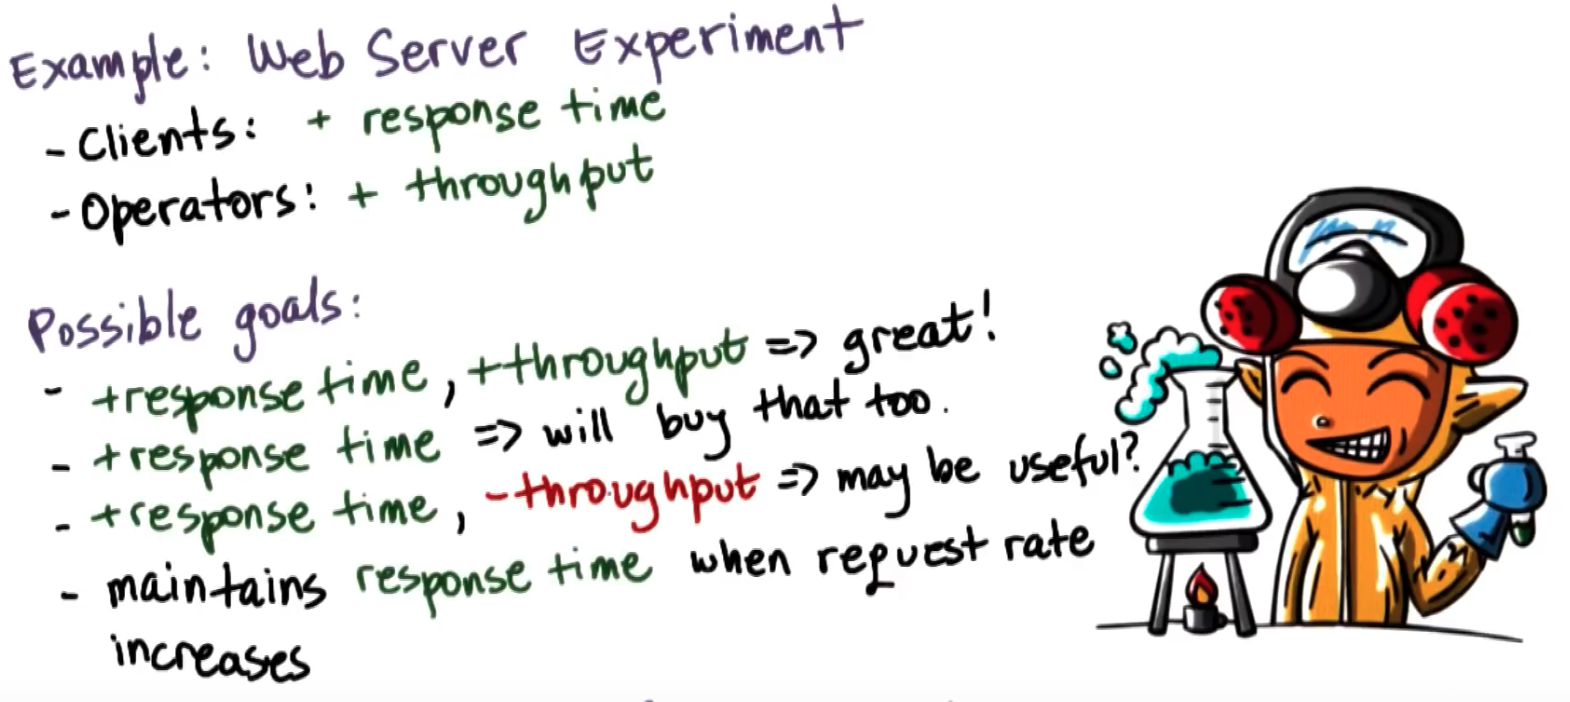 Example: Web Server Experiment
- Clients: + response time
- Operators: + throughput
Possible goals:
- +response time, +throughput => great!
- +response time => will buy that too.
- +response time, -throughput => may be useful?
- maintains response time when request rate
increases